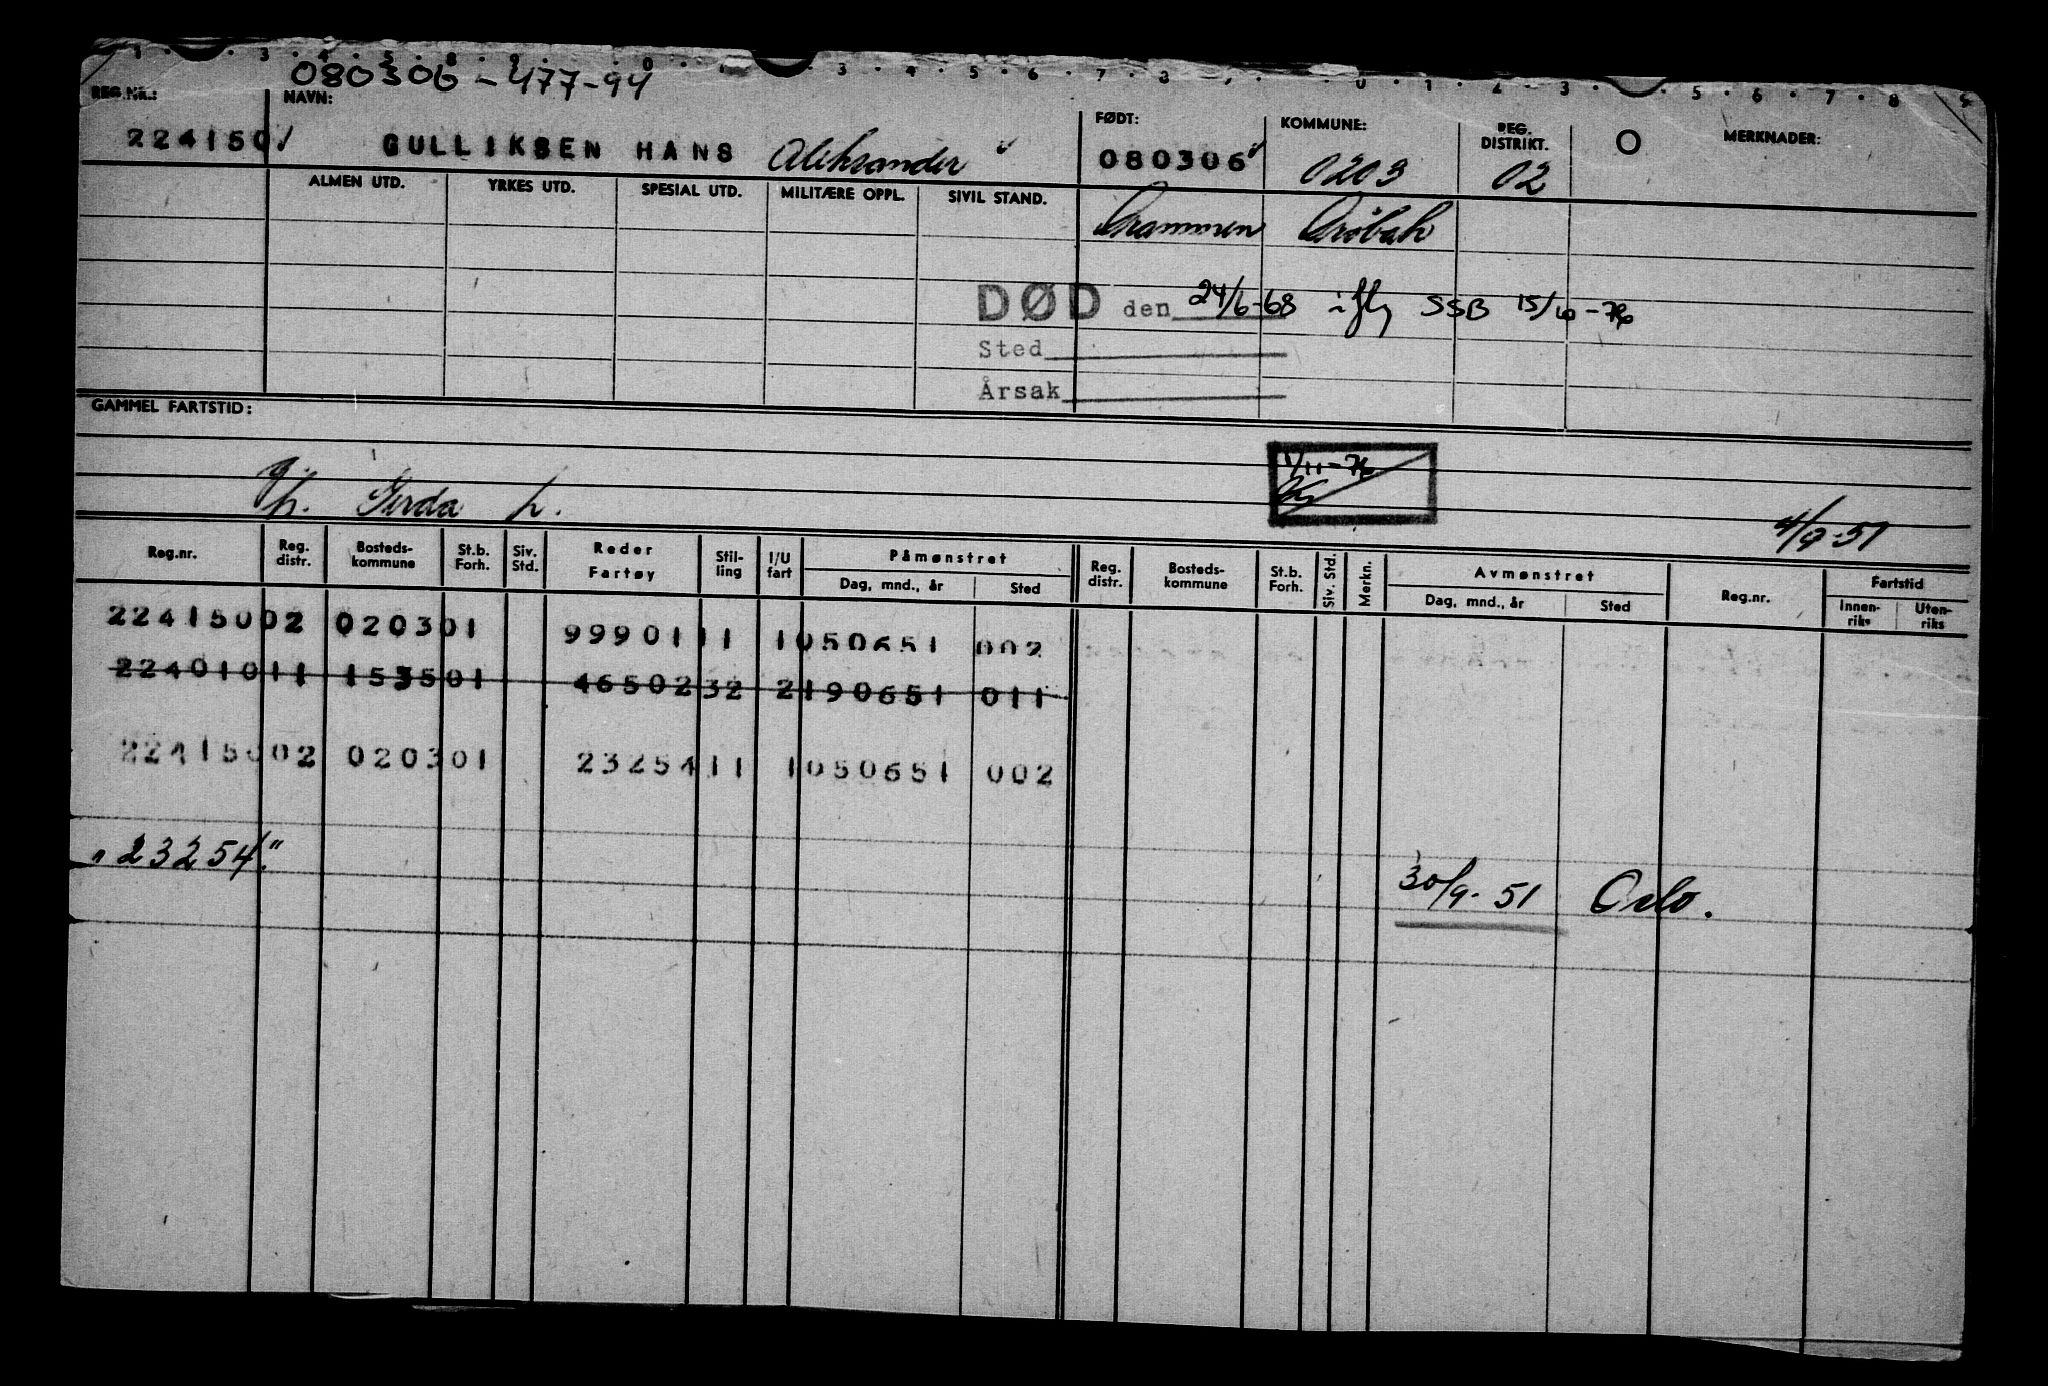 080306-477-94
REG.NR.: NAVN: FØDT: KOMMUNE: REG. DISTRIKT. MERKNADER:
224150 GULLIKSEN HANS Aleksander 080306 0203 02
ALMEN UTD. YRKES UTD. SPESIAL UTD. MILITÆRE OPPL. SIVIL STAND. Drammen Drøbak
DØD den 24/6-68 iflg SSB 15/10-76
Sted
Årsak
GAMMEL FARTSTID:
1/11-76
Gerda L.
4/9-51
Reg.nr. Reg. distr. Bosteds-kommune St.b. Forh. Siv. Std. Reder Fartøy Stil-ling I/U fart Påmønstret Dag, mnd., år Sted Reg. distr. Bosteds-kommune St.b. Forh. Siv. Std. Merkn. Avmønstret Dag, mnd., år Sted Reg.nr. Fartstid Innen-riks Uten-riks
22415002 020301 9990111 1050651 002
22401011 153501 4650232 2190651 011
22415002 020301 2325411 1050651 002
"23254." 30/9-51 Oslo.